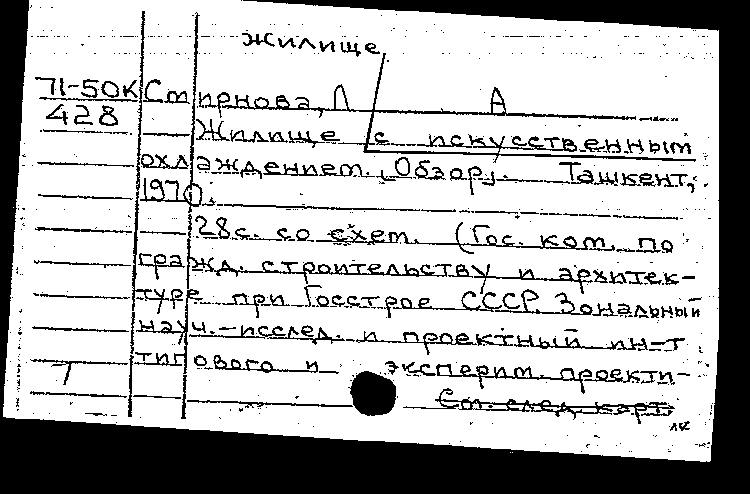 жилище
71-50к Смирнова, Л А
428 Жилище с искусственным
охлаждением. [Обзор]. Ташкент,
1970.
28с. со схем. (Гос. ком. по
гражд. строительству и архитек-
туре при Госстрое СССР. Зональный
науч.-исслед. и проектный ин-т
типового и эксперим. проекти-
1 См. след. карт.